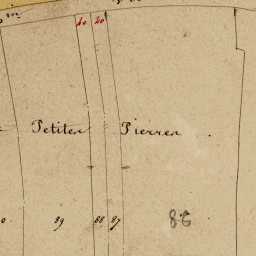 40 40
Petites Pierres .
89 88 87 86